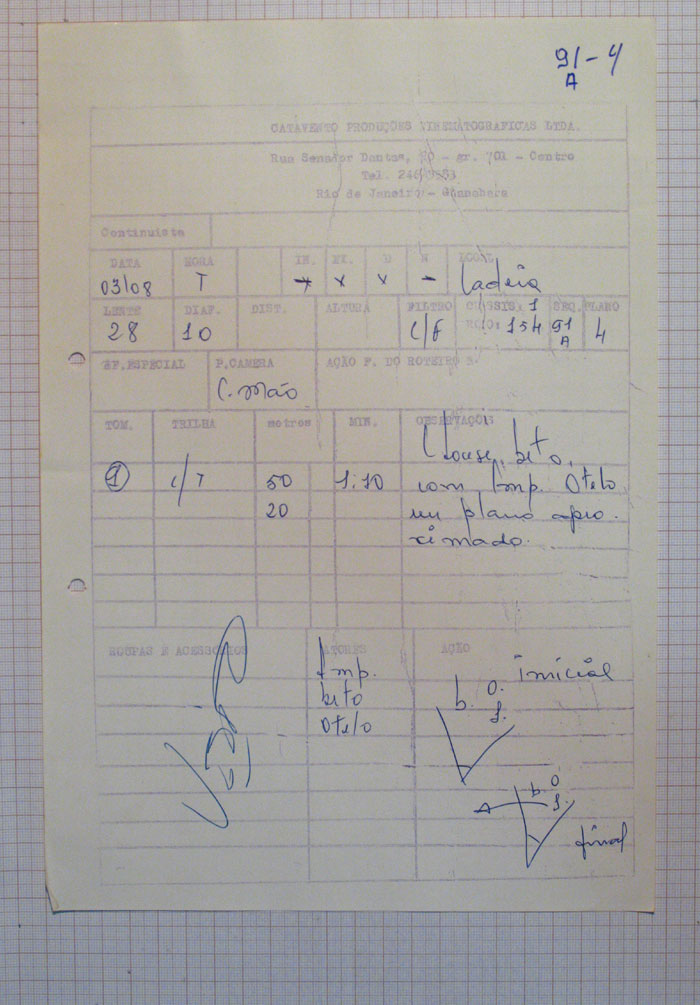 91-4
A
CATAVENTO PRODUÇÕES CINEMATOGRAFICAS LTDA.
Rua Senador Dantas, 20 - gr. 701 - Centro
Rio de Janeiro - Guanabara
Continuista
DATA HORA IN. EX. D N LOCAL
03/08 T x x - Ladeira
LENTE DIAF. DIST. ALTURA FILTRO CHASSIS: 1 SEQ. PLANO
28 10 C/F ROLO: 154 91 A 4
EF. ESPECIAL P. CAMERA AÇÃO P. DO ROTEIRO
C. Mão
TOM. TRILHA metros MIN. OBSERVAÇÕES
Clouse, beto,
1 c/T 50 1:10 com Imp. Otelo,
20 um plano apro-
ximado.
ROUPAS E ACESSÓRIOS ATORES AÇÃO
Imp.
beto
Otelo
inicial
b. O.
I.
b. O
A I.
final